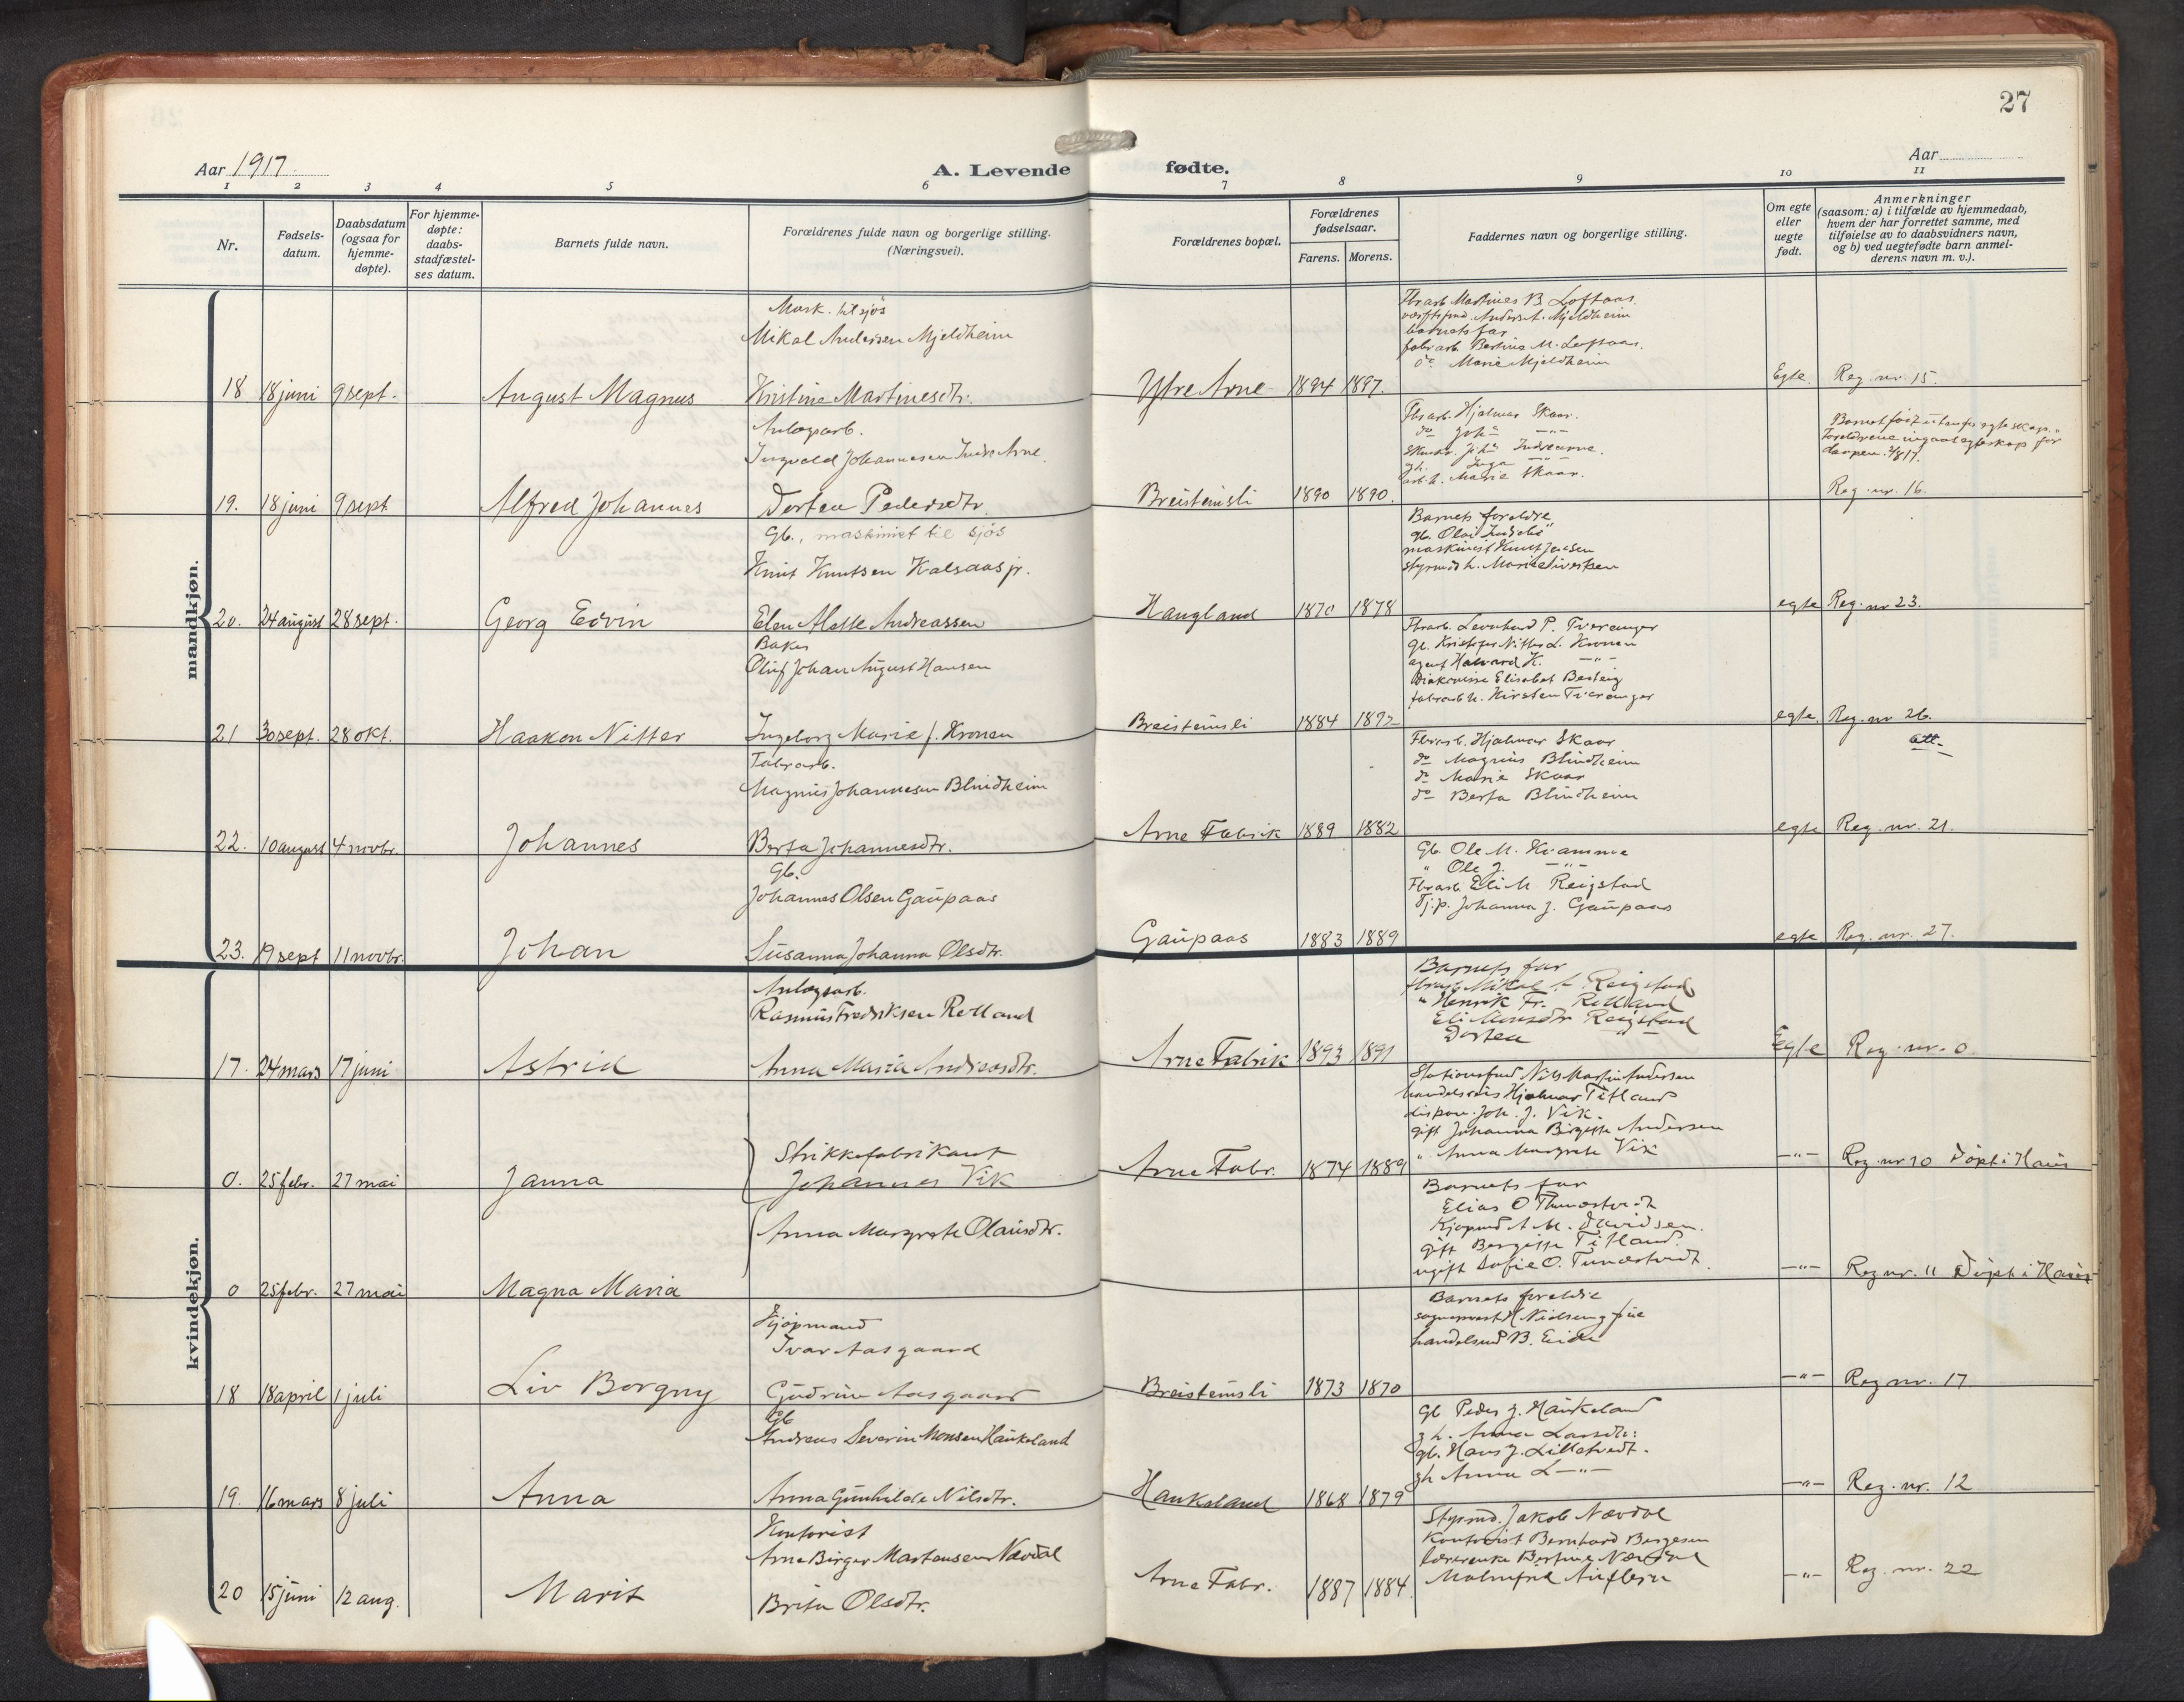 27
Aar 1917.
A. Levende fødte.
Aar
1 2 3 4 5 6 7 8 9 10 11
Nr.
Fødsels-
datum.
Daabsdatum
(ogsaa for
hjemme-
døpte).
For hjemme-
døpte:
daabs-
stadfæstel-
ses datum.
Barnets fulde navn.
Forældrenes fulde navn og borgerlige stilling.
(Næringsvei).
Forældrenes bopæl.
Forældrenes
fødselsaar.
Farens. Morens.
Faddernes navn og borgerlige stilling.
Om egte
eller
uegte
født.
Anmerkninger
(saasom: a) i tilfælde av hjemmedaab,
hvem der har forrettet samme, med
tilføielse av to daabsvidners navn,
og b) ved uegtefødte barn anmel-
derens navn m. v.).
mandkjøn.
Mask. til sjøs
Mikal Andersen Mjeldheim
18 18 juni 9 sept. August Magnus Kristine Martinesdtr. Ytre Arne 1894 1897.
Fbrarb. Martines B. Loftaas.
Anders A. Mjeldheim
barnets far
fabrarb. Bertine M. Loftaas.
do Marie Mjeldheim
Egte. Reg. nr. 15.
Anlægsarb.
Ingvald Johannesen Indre Arne.
19. 18 juni 9 sept Alfred Johannes Dortea Pedersdtr. Breisteinsli 1890 1890.
Fbrarb. Hjalmar Skaar.
do Joh. —"—
Joh. Indrearne.
gh. Inga —"—
Marie Skaar.
Barnet født utenfor egteskap.
Foreldrene indgaat egteskap før
daapen. 4/8 17.
Reg. nr. 16.
Gb., maskinist til sjøs
Knut Knutsen Kalsaas jr.
20. 24 august 28 sept. Georg Edvin Elen Mette Andreassen Haugland 1870 1878
Barnets foreldre
gb. Olai
maskinist Knut Jensen
styrmds h. Marie Iversen
egte Reg. nr 23.
Baker
Oluf Johan August Hansen
21 30 sept. 28 okt. Haakon Nitter Ingeborg Marie f. Kronen Breisteinsli 1884 1892
Fbrarb. Leonhard P. Tveranger
gb. Kristofer Nitter L. Kronen
agent Halvard K. —"—
Diakonisse Elisabet
fabrarb h. Kirsten Tveranger
egte Reg. nr 26.
att.
Fabrarb.
Magnus Johannesen Blindheim
22. 10 august 4 novbr. Johannes Berta Johannesdtr. Arne Fabrik 1889 1882
Fbrarb. Hjalmar Skaar
do Magnus Blindheim
do Marie Skaar
do Berta Blindheim
egte Reg. nr. 21.
Gb.
Johannes Olsen Gaupaas
23. 19 sept 11 novbr. Johan Susanna Johanna Olsdtr. Gaupaas 1883 1889
Gb. Ole M. Kvamme
" Ole J. —"—
Fbrarb Eli M Reigstad
Tj.p. Johanna J. Gaupaas
egte Reg. nr. 27.
kvindekjøn.
Anlægsarb.
Rasmus Fredriksen Rolland
17. 24 mars 17 juni Astrid Anna Maria Andreasdtr. Arne Fabrik 1893 1891
Barnets far
fbrarb Mikal A Reigstad
" Henrik Fr. Rolland
Eli Monsdtr Reigstad
Dortea —"—
Egte Reg. nr. 0
Strikkefabrikant
0. 25 febr. 27 mai Janna Johannes Vik Arne Fabr. 1874 1889
Nils Martin Andersen
handelsreis Hjalmar Titland
dispon. Joh. J. Vik.
gift Johanna Birgitte Andersen
" Anna Margrete Vik
—"— Reg. nr 10 Døpt i Haus
Anna Margrete Olausdtr.
0 25 febr. 27 mai Magna Maria
Barnets far
Elias O Thunestvedt
Kjøpmd A. M. Davidsen.
gift Bergitte Titland.
ugift Sofie O. Tunestvedt.
—"— Reg nr. 11 Døpt i Haus
Kjøpmand
Ivar Aasgaard
18 18 april 1 juli Liv Borgny Gudrun Aasgaard Breisteinsli 1873 1870
Barnets foreldre
sogneprest H Nielsen og frue
handelsmd B. Eide
—"— Reg nr. 17
Gb
Andreas Severin Monsen Haukeland
19. 16 mars 8 juli Anna Anna Gunhilde Nilsdtr. Haukeland 1868 1879
gb Peder J. Haukeland
gh. Anna Larsdtr:
gb. Hans J. Lilletvedt.
gh Anna L —"—
—"— Reg. nr. 12
Kontorist
Arne Birger Martensen Nævdal
20 15 juni 12 aug. Marit Brita Olsdtr. Arne Fabr. 1887 1884
Styrmd. Jakob Nævdal
Kontorist Bernhard Bergesen
lærerenke Bertine Nævdal
Malmfrid
—"— Reg. nr. 22